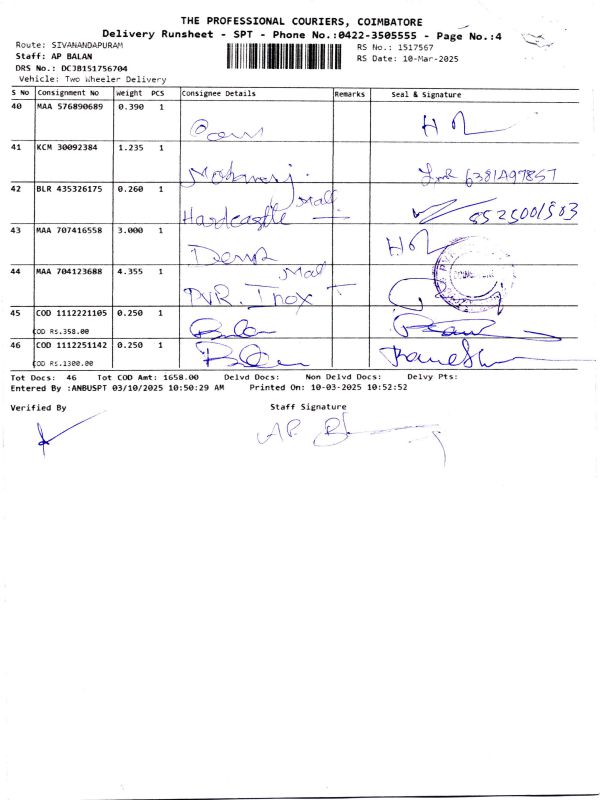 THE PROFESSIONAL COURIERS, COIMBATORE
Delivery Runsheet - SPT - Phone No.:0422-3505555 - Page No.:4
Route: SIVANANDAPURAM
RS No.: 1517567
Staff: AP BALAN
RS Date: 10-Mar-2025
DRS No.: DCJB151756704
Vehicle: Two Wheeler Delivery
S No Consignment No Weight PCS Consignee Details Remarks Seal & Signature
40 MAA 576890689 0.390 1
41 KCM 30092384 1.235 1
Mohanraj.
42 BLR 435326175 0.260 1
Mall
Hardcastle 8525001503
43 MAA 707416558 3.000 1
44 MAA 704123688 4.355 1
Mall
PVR. Inox
45 COD 1112221105 0.250 1
COD RS.358.00
46 COD 1112251142 0.250 1
COD RS.1300.00
Tot Docs: 46 Tot COD Amt: 1658.00 Delvd Docs: Non Delvd Docs: Delvy Pts:
Entered By :ANBUSPT 03/10/2025 10:50:29 AM Printed On: 10-03-2025 10:52:52
Verified By Staff Signature